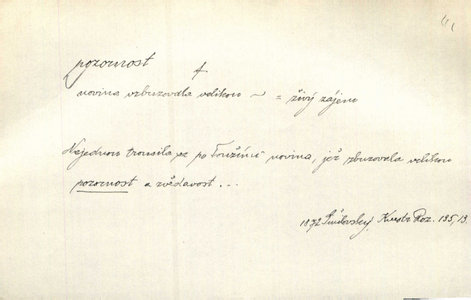 pozornost
novina vzbuzovala velikou ~ = živý zájem
Najednou trousila se po Toužimi novina, jež zbuzovala velikou
pozornost a zvědavost...
1872 Kust Roz. 135,13.